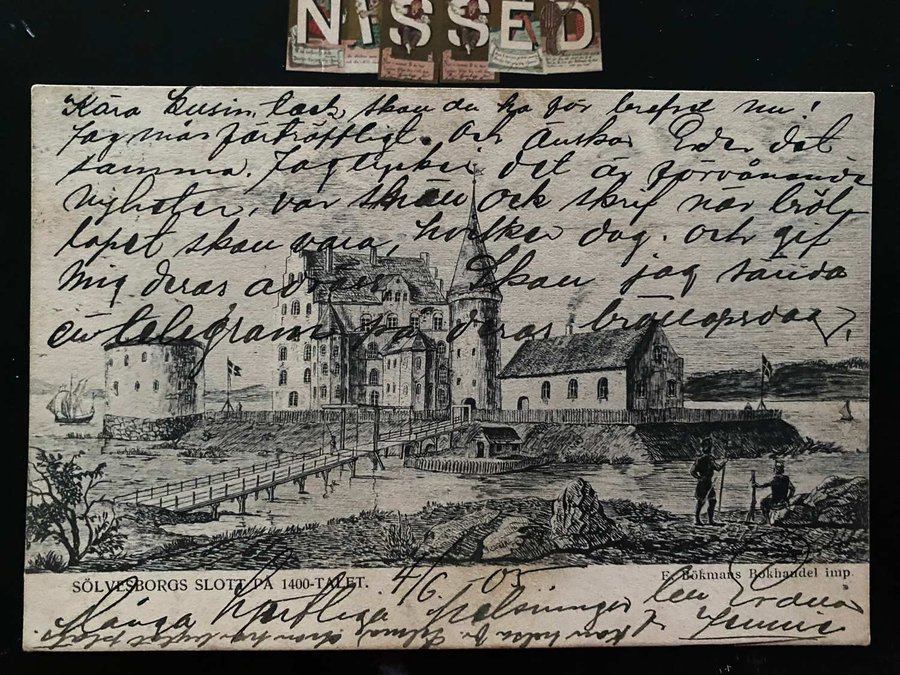 NISSED
Kära Cusin, tack skan du ha för brefvet nu!
Jag mår förträffligt. Och önskar Eder det
samma. Jag tycker det är förvånande
nyheter, var snan och skrif när bröl
lopet skan vara, hvilken dag. och gif
mig deras adress. Skan jag sända
ett telegram på deras bröllopsdag?
SÖLVESBORGS SLOTT PÅ 1400-TALET. 4/6 -05 E. Bökmans Bokhandel imp.
Många hjertliga helsningar
Kan helsa